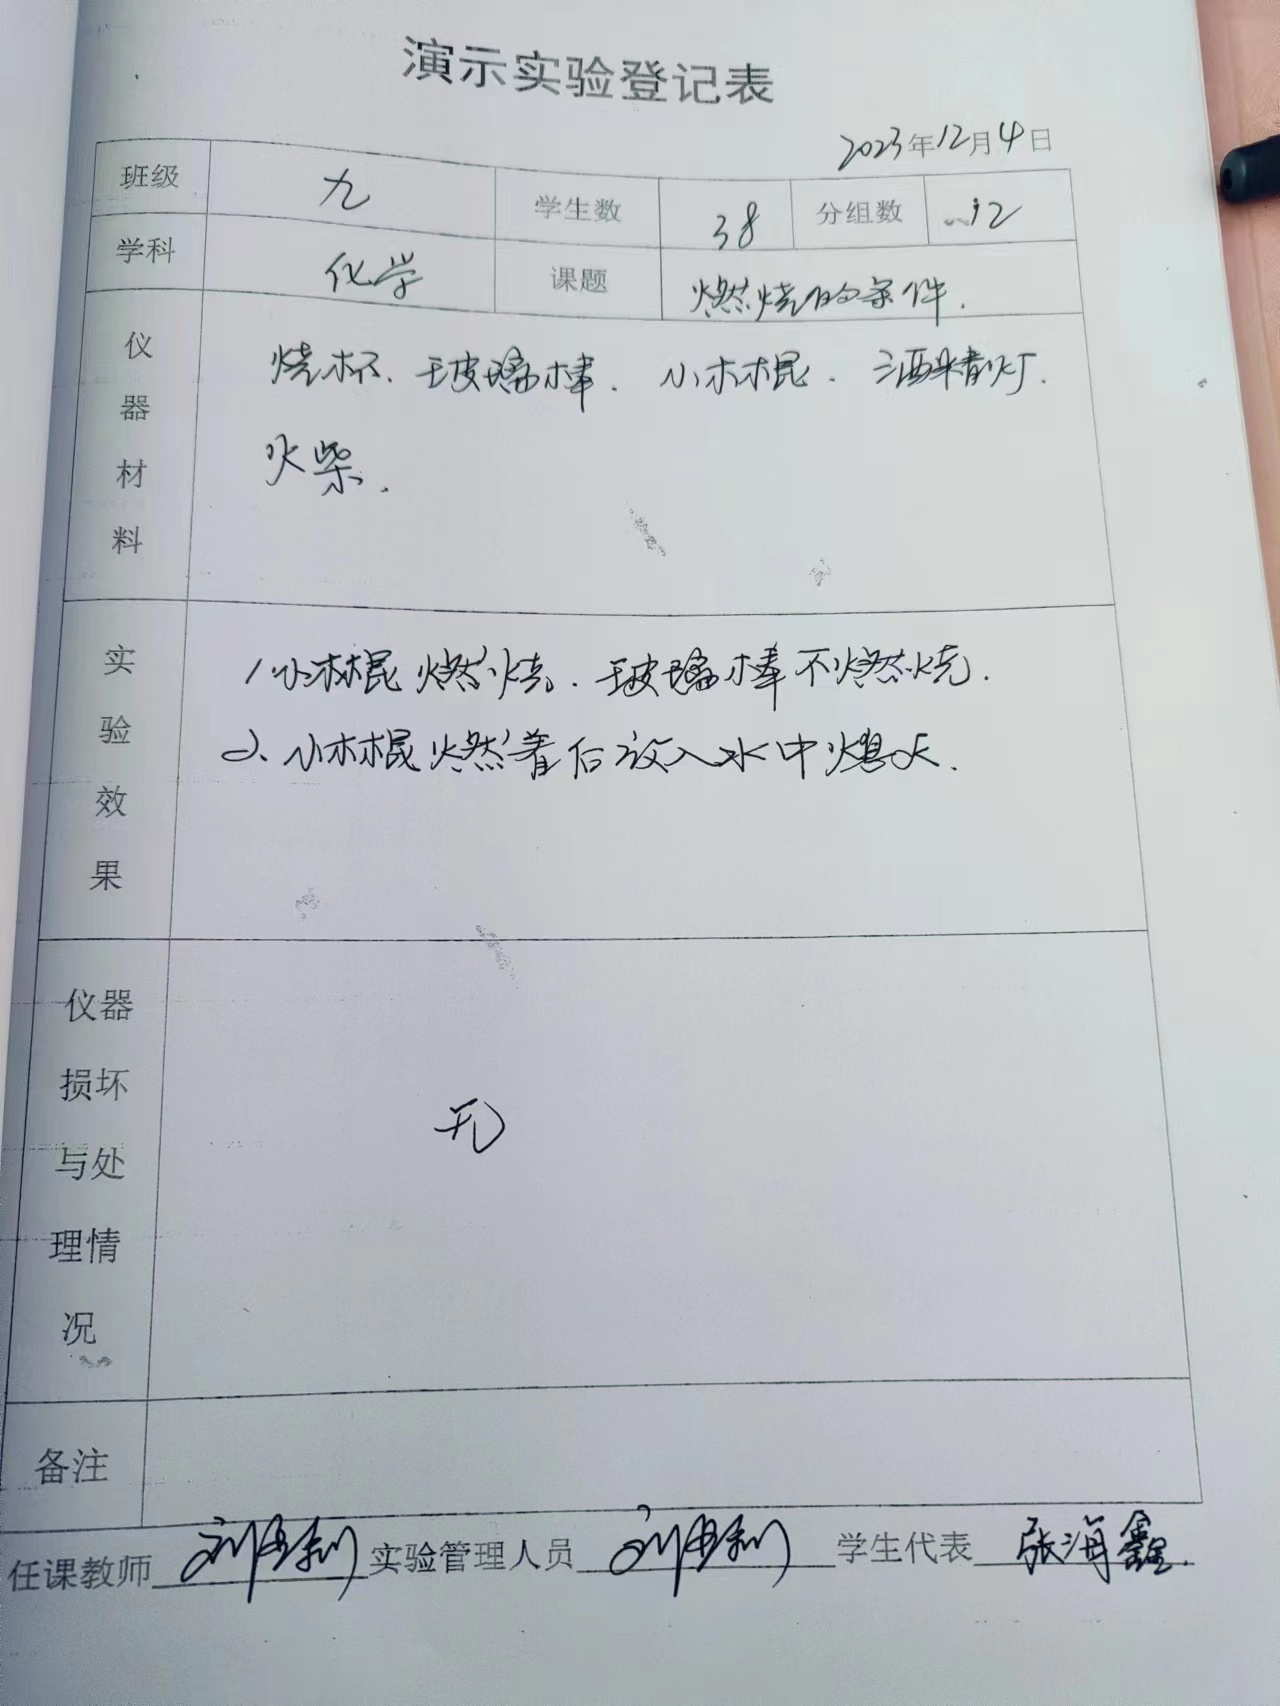 演示实验登记表
2023年12月4日
班级 九 学生数 38 分组数 12
学科 化学 课题 燃烧的条件.
仪器材料 烧杯. 玻璃棒. 小木棍. 酒精灯.
火柴.
实验效果 1、小木棍燃烧. 玻璃棒不燃烧.
2、小木棍燃着后放入水中熄灭.
仪器损坏与处理情况 无
备注
任课教师 刘 利 实验管理人员 刘 利 学生代表 张海鑫